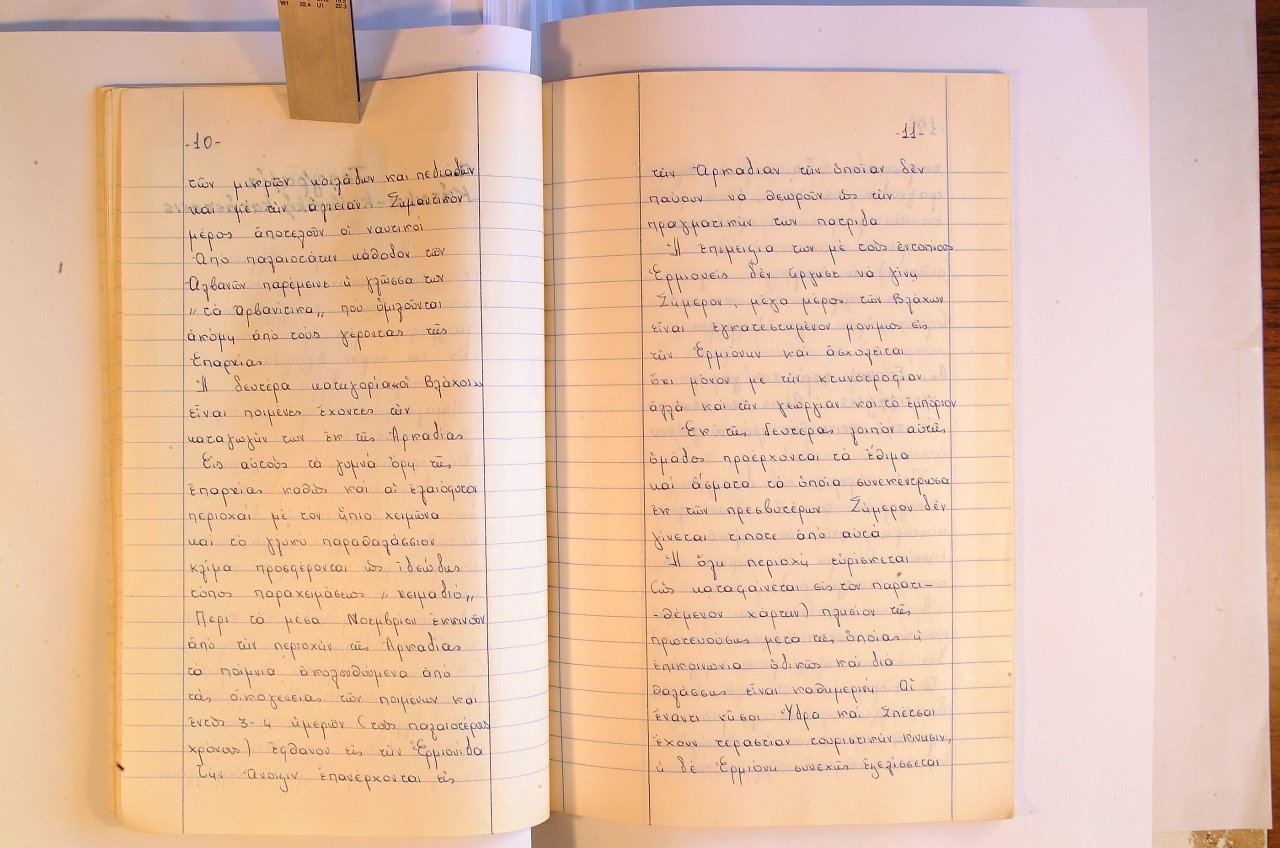 -10-
τῶν μικρῶν κοιλάδων και πεδιάδων
και με τὴν ἁλιείαν. Σημαντικὸν
μέρος ἀποτελοῦν οἱ ναυτικοί
Ἀπὸ παλαιοτάτην κάθοδον τῶν
Ἀλβανῶν παρέμεινε ἡ γλῶσσα των
„ τὰ Ἀρβανίτικα „ ποὺ ὁμιλοῦνται
ἀκόμη ἀπὸ τοὺς γέροντας τῆς
Ἐπαρχίας
Ἡ δευτέρα κατηγορία οἱ Βλάχοι
εἶναι ποιμένες ἔχοντες τὴν
καταγωγήν των ἐκ τῆς Ἀρκαδίας
Εἰς αὐτοὺς τὰ γυμνὰ ὄρη τῆς
ἐπαρχίας καθὼς καὶ αἱ ἐλαιόφυτοι
περιοχαὶ μὲ τὸν ἤπιο χειμῶνα
καὶ τὸ γλυκὺ παραθαλάσσιον
κλίμα προσφέρονται ὡς ἰδεώδης
τόπος παραχειμάσεως „ χειμαδιό „
Περὶ τὰ μέσα Νοεμβρίου ἐκκινοῦν
ἀπὸ τὴν περιοχὴν τῆς Ἀρκαδίας
τὰ ποίμνια ἀκολουθώμενα ἀπὸ
τὰς οἰκογένειας τῶν ποιμένων καὶ
ἐντὸς 3-4 ἡμερῶν (τοὺς παλαιοτέρους
χρόνους) ἔφθανον εἰς τὴν Ἑρμιονίδα
Τὴν Ἄνοιξιν ἐπανέρχονται εἰς
-11-
τὴν Ἀρκαδίαν τὴν ὁποίαν δὲν
παύουν νὰ θεωροῦν ὡς τὴν
πραγματικὴν των πατρίδα
Ἡ ἐπιμειξία των μὲ τοὺς ἐντοπίους
Ἑρμιονεῖς δὲν ἤργησε νὰ γίνη
Σήμερον, μέγα μέρος τῶν Βλάχων
εἶναι ἐγκατεστημένον μονίμως εἰς
τὴν Ἑρμιόνην καὶ ἀσχολεῖται
ὄχι μόνον με τὴν κτηνοτροφίαν
ἀλλὰ καὶ τὴν γεωργίαν καὶ τὸ ἐμπόριον
Ἐκ τῆς δευτέρας λοιπὸν αὐτῆς
ὁμάδος προέρχονται τὰ ἔθιμα
καὶ ἄσματα τὰ ὁποῖα συνεκέντρωσα
ἐκ τῶν πρεσβυτέρων. Σήμερον δὲν
γίνεται τίποτε ἀπὸ αὐτά
Ἡ ὅλη περιοχὴ εὑρίσκεται
(ὡς καταφαίνεται εἰς τὸν παρατι-
-θέμενον χάρτην) πλησίον τῆς
πρωτευούσης μετὰ τῆς ὁποίας ἡ
ἐπικοινωνία ὁδικῶς καὶ διὰ
θαλάσσης εἶναι καθημερινή. Αἱ
ἔναντι νῆσοι Ὕδρα καὶ Σπέτσαι
ἔχουν τεραστίαν τουριστικὴν κίνησιν,
ἡ δὲ Ἑρμιόνη συνεχῶς ἐξελίσσεται